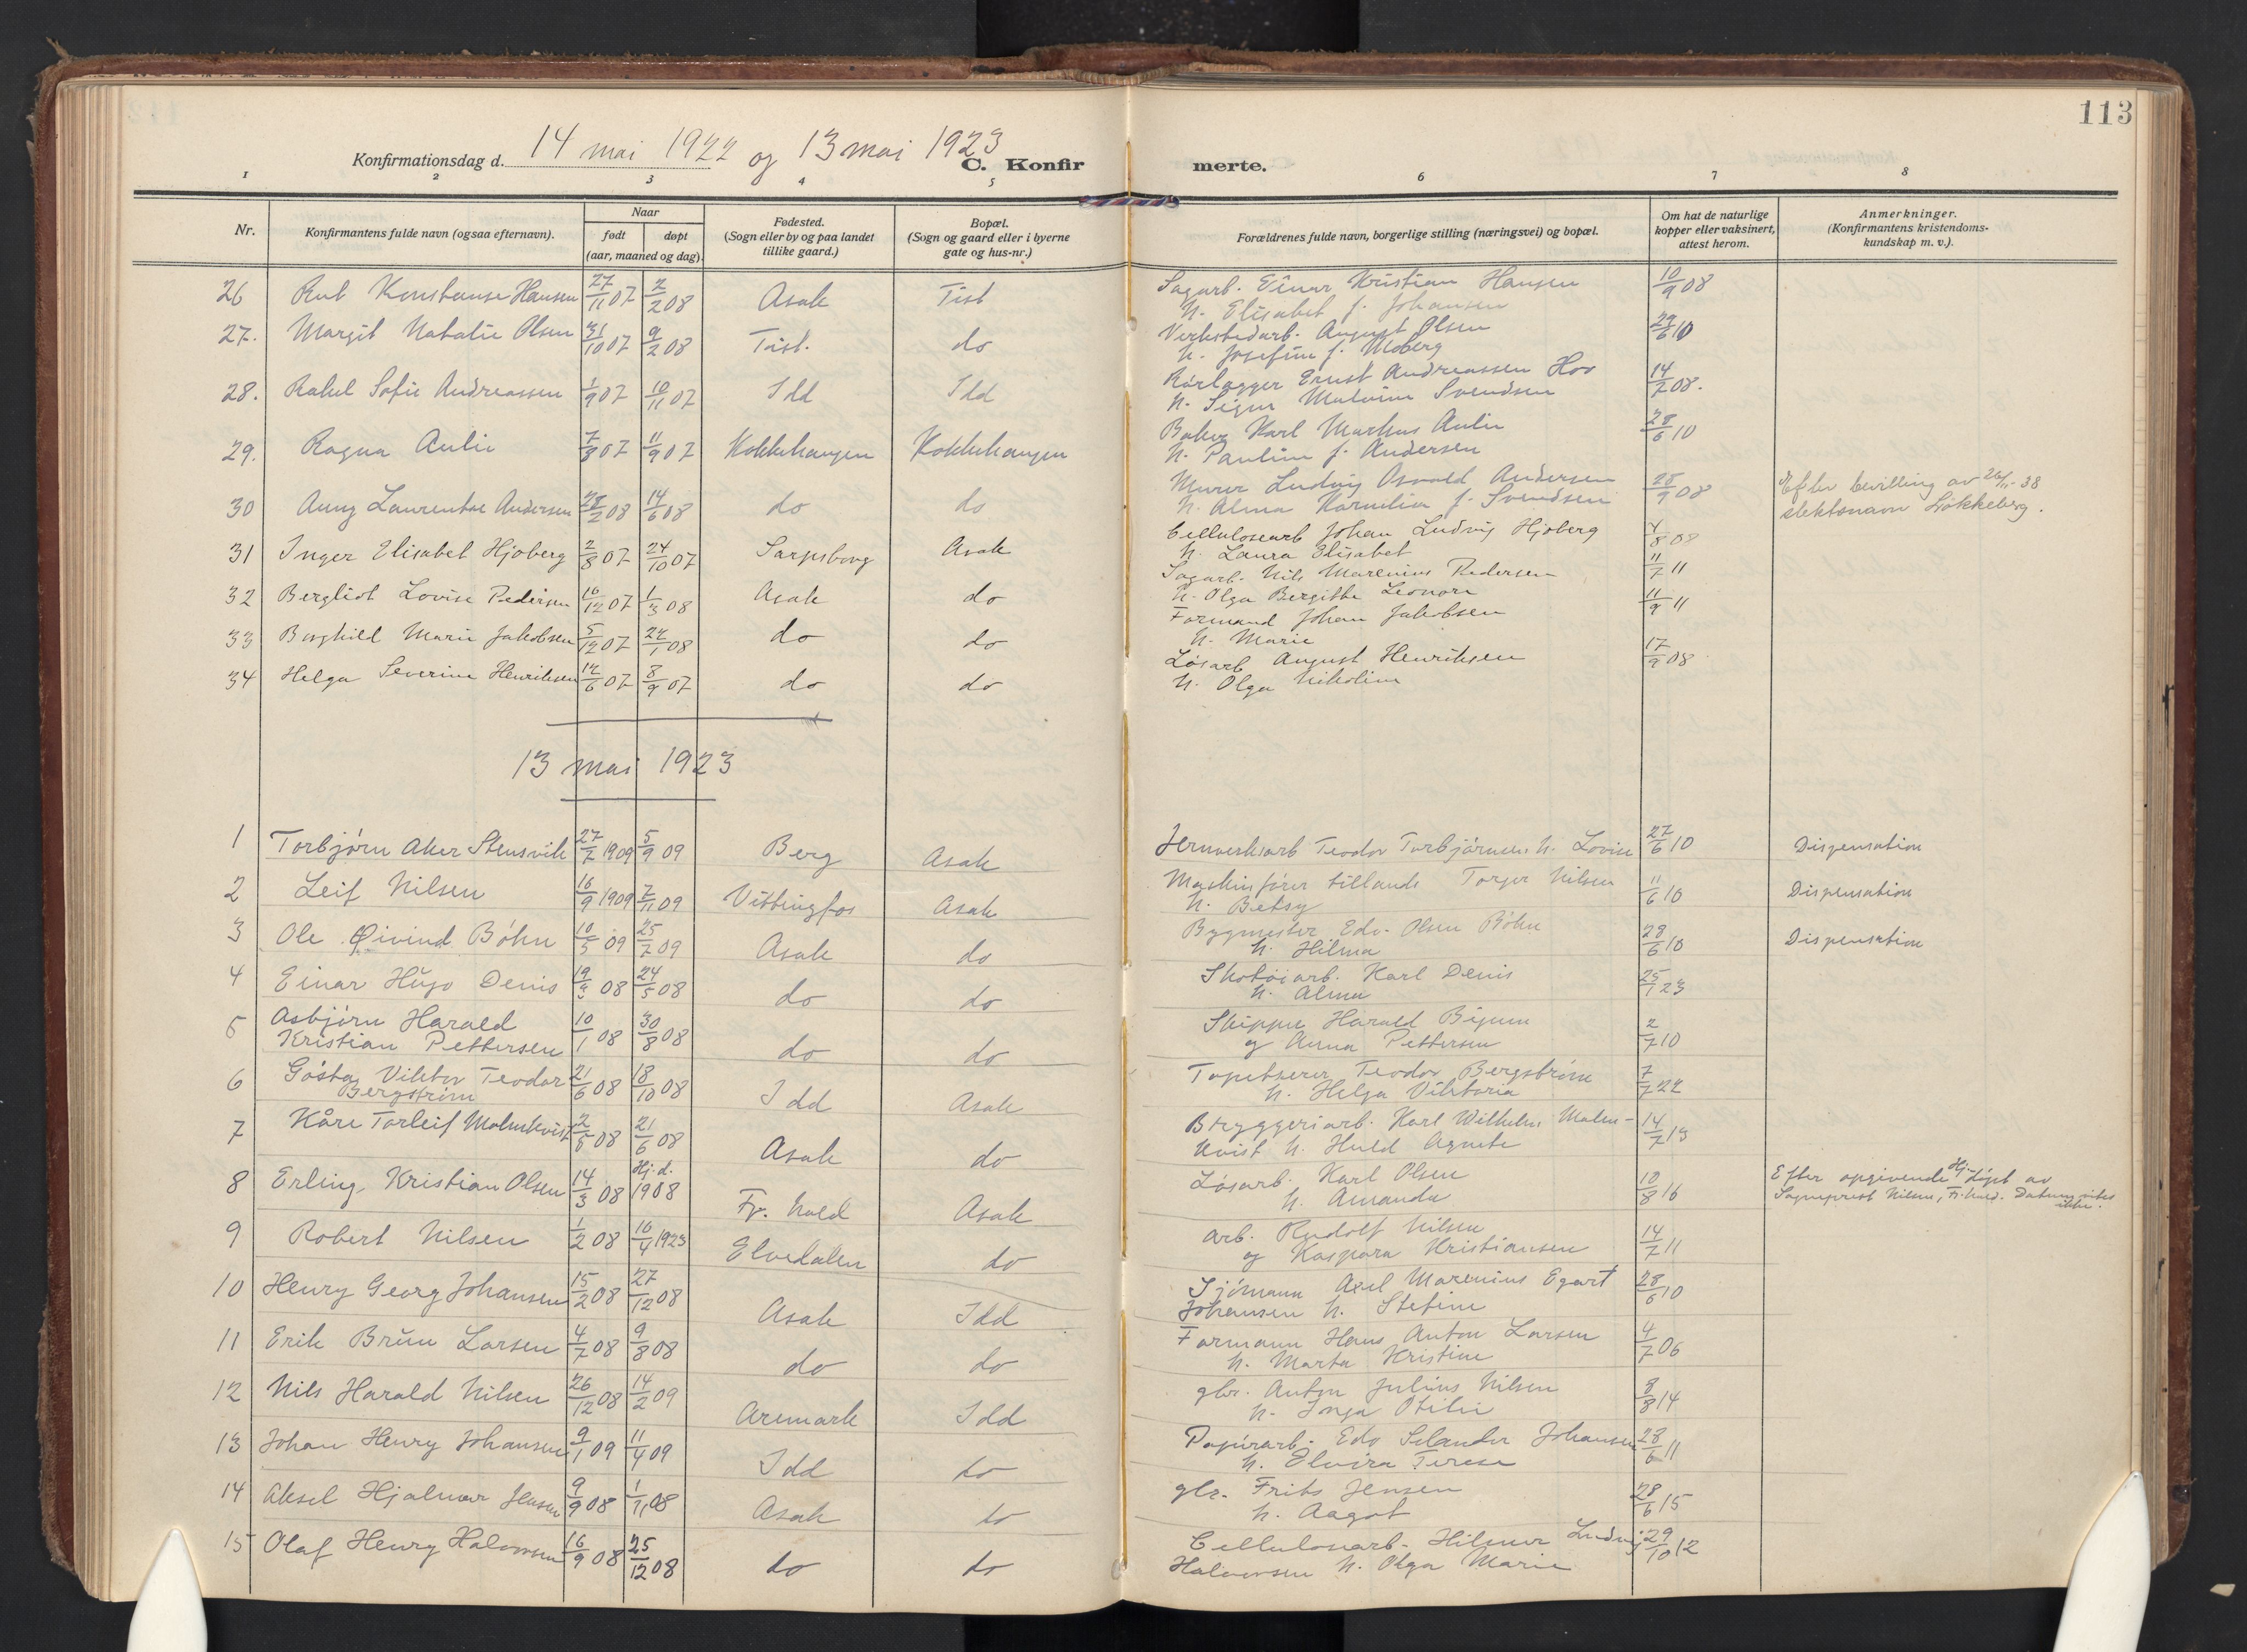 113
Konfirmationsdag d. 14 mai 1922 og 13 mai 1923
C. Konfirmerte.
1 2 3 4 5 6 7 8
Nr. Konfirmantens fulde navn (ogsaa efternavn). Naar født døpt (aar, maaned og dag). Fødested. (Sogn eller by og paa landet tillike gaard.) Bopæl. (Sogn og gaard eller i byerne gate og hus-nr.) Forældrenes fulde navn, borgerlige stilling (næringsvei) og bopæl. Om hat de naturlige kopper eller vaksinert, attest herom. Anmerkninger. (Konfirmantens kristendomskundskap m. v.).
26 Rut Konstanse Hansen 27/11 07 2/2 08 Asak Tist Sagarb. Einar Kristian Hansen 10/9 08
h. Elisabet f. Johansen
27. Margit Natalie Olsen 31/10 07 9/2 08 Tist. do Verkstedarb. August Olsen 29/6 10
h. Josefine f. Moberg
28. Rakel Sofie Andreassen 1/9 07 10/11 07 Idd Idd Rørlægger Ernst Andreassen Hov 14/7 08.
h. Signe Malvine Svendsen
29. Ragna Aulie 7/8 07 11/9 07 Kokkehaugen Kokkehaugen Baker Karl Markus Aulie 28/6 10
h. Pauline f. Andersen
30 Anny Laurentse Andersen 28/2 08 14/6 08 do do Murer Ludvig Osvald Andersen 25/9 08 Efter bevilling av 26/11-38
h. Alma Kornelia f. Svendsen slektsnavn Løkkeberg.
31 Inger Elisabet Hjøberg 2/8 07 24/10 07 Sarpsborg Asak Cellulosearb Johan Ludvig Hjøberg 4/8 08
h. Laura Elisabet
32 Bergliot Lovise Pedersen 16/12 07 1/3 08 Asak do Sagarb. Nils Marenius Pedersen 11/7 11
h. Olga Bergithe Leonore
33 Borghild Marie Jakobsen 5/12 07 22/1 08 do do Formand Johan Jakobsen 11/9 11
h. Marie
34 Helga Severine Henriksen 12/6 07 8/9 07 do do Løsarb August Henriksen 17/9 08
h. Olga Nikoline
13 mai 1923
1 Torbjørn Aker Stensvik 27/7 1909 5/9 09 Berg Asak Jernverksarb Teodor Torbjørnsen h. Lovise 27/6 10 Dispensation
2 Leif Nilsen 16/9 1909 7/11 09 Vittingfos Asak Maskinfører tillands Torger Nilsen 11/6 10 Dispensation
h. Betsy
3 Ole Øivind Bøhn 10/5 09 25/7 09 Asak do Bygmester Edv. Olsen Bøhn 28/6 10 Dispensation
h. Hilma
4 Einar Hugo Denis 19/3 08 24/5 08 do do Skotøiarb. Karl Denis 25/1 23
h. Alma
5 Asbjørn Harald
Kristian Pettersen 10/1 08 30/8 08 do do Skipper Harald
og Anna Pettersen 2/7 10
6 Gösta Viktor Teodor
Bergström 21/6 08 18/10 08 Idd Asak Tapetserer Teodor Bergström 7/7 22
h. Helga Viktoria
7 Kåre Torleif Malmkvist 2/5 08 21/6 08 Asak do Bryggeriarb. Karl Wilhelm Malm- 14/7 13
kvist h. Huld Agnete
8 Erling Kristian Olsen 14/3 08 Hj.d. 1908 Fr. hald Asak Løsarb. Karl Olsen 10/8 16 Efter opgivende Hj. døpt av
h. Amanda Sogneprest Nilsen, Fr.hald. Datum vites ikke.
9 Robert Nilsen 1/2 08 16/4 1923 Elvedalen do Arb. Rudolf Nilsen 14/7 11
og Kaspara Kristiansen
10 Henry Georg Johansen 15/2 08 27/12 08 Asak Idd Sjømann Axel Marenius Egart 28/6 10
Johansen h. Stefine
11 Erik Brun Larsen 4/7 08 9/8 08 do do Formann Hans Anton Larsen 4/7 06
h. Marta Kristine
12 Nils Harald Nilsen 26/12 08 14/2 09 Aremark Idd gbr. Anton Julius Nilsen 8/8 14
h. Inga Otilie
13 Johan Henry Johansen 9/1 09 11/4 09 Idd do Papirarb. Edv Selander Johansen 28/6 11
h. Elvira Terese
14 Aksel Hjalmar Jensen 9/9 08 1/11 08 Asak do gbr. Frits Jensen 28/6 15
h. Aagot
15 Olaf Henry Halvorsen 16/9 08 25/12 08 do do Cellulosearb. Hilmer Ludvig 29/10 12
Halvorsen h. Olga Marie